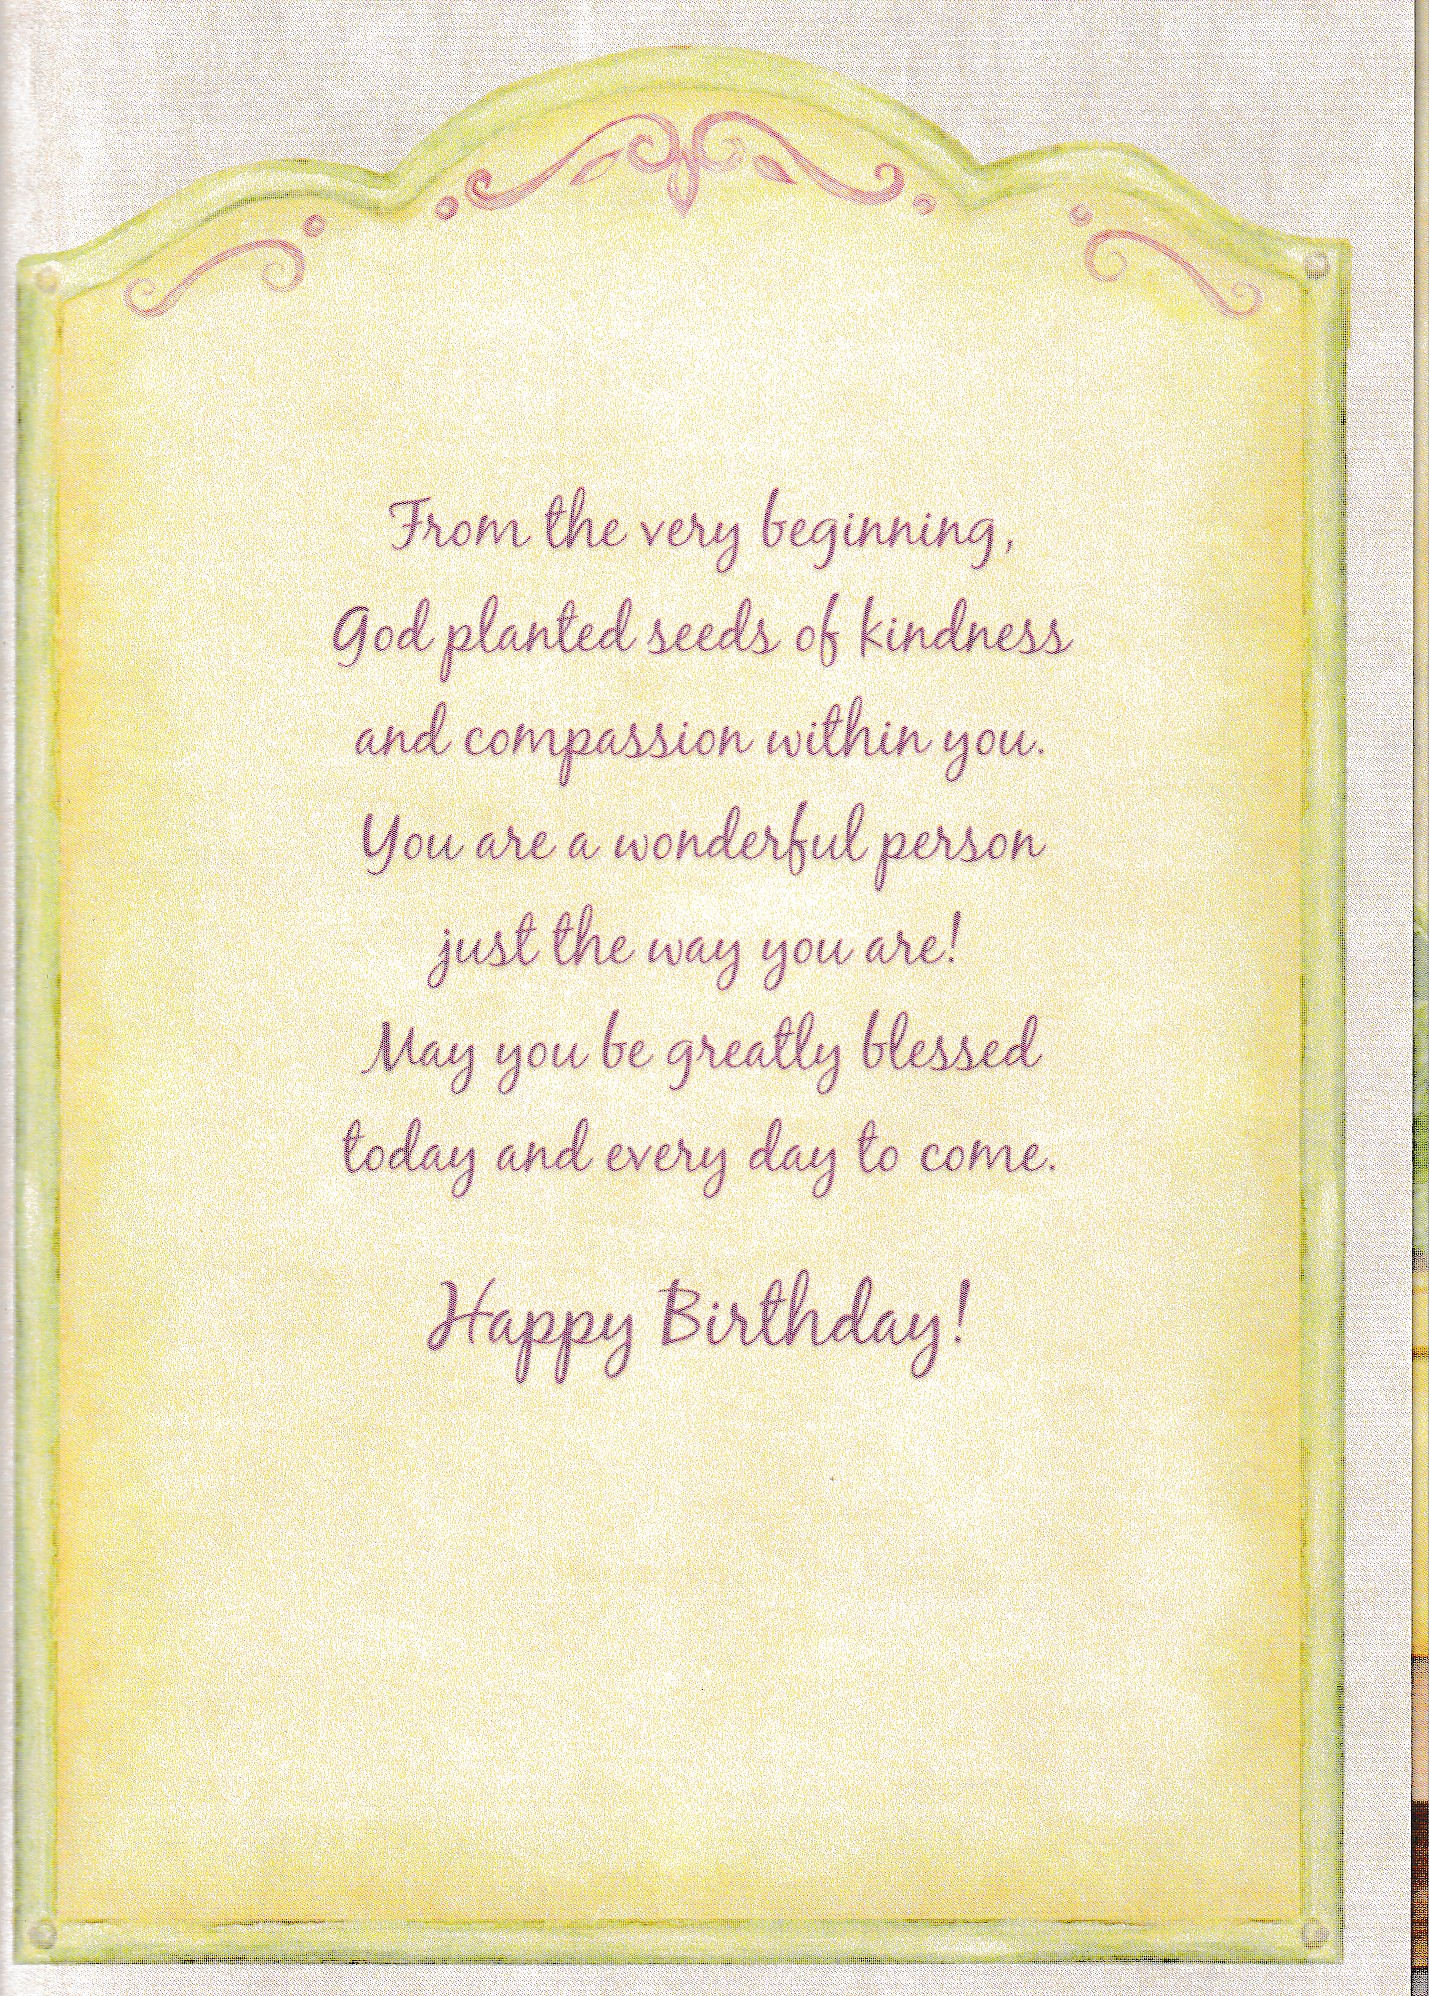 From the very beginning,
God planted seeds of kindness
and compassion within you.
You are a wonderful person
just the way you are!
May you be greatly blessed
today and every day to come.
Happy Birthday!